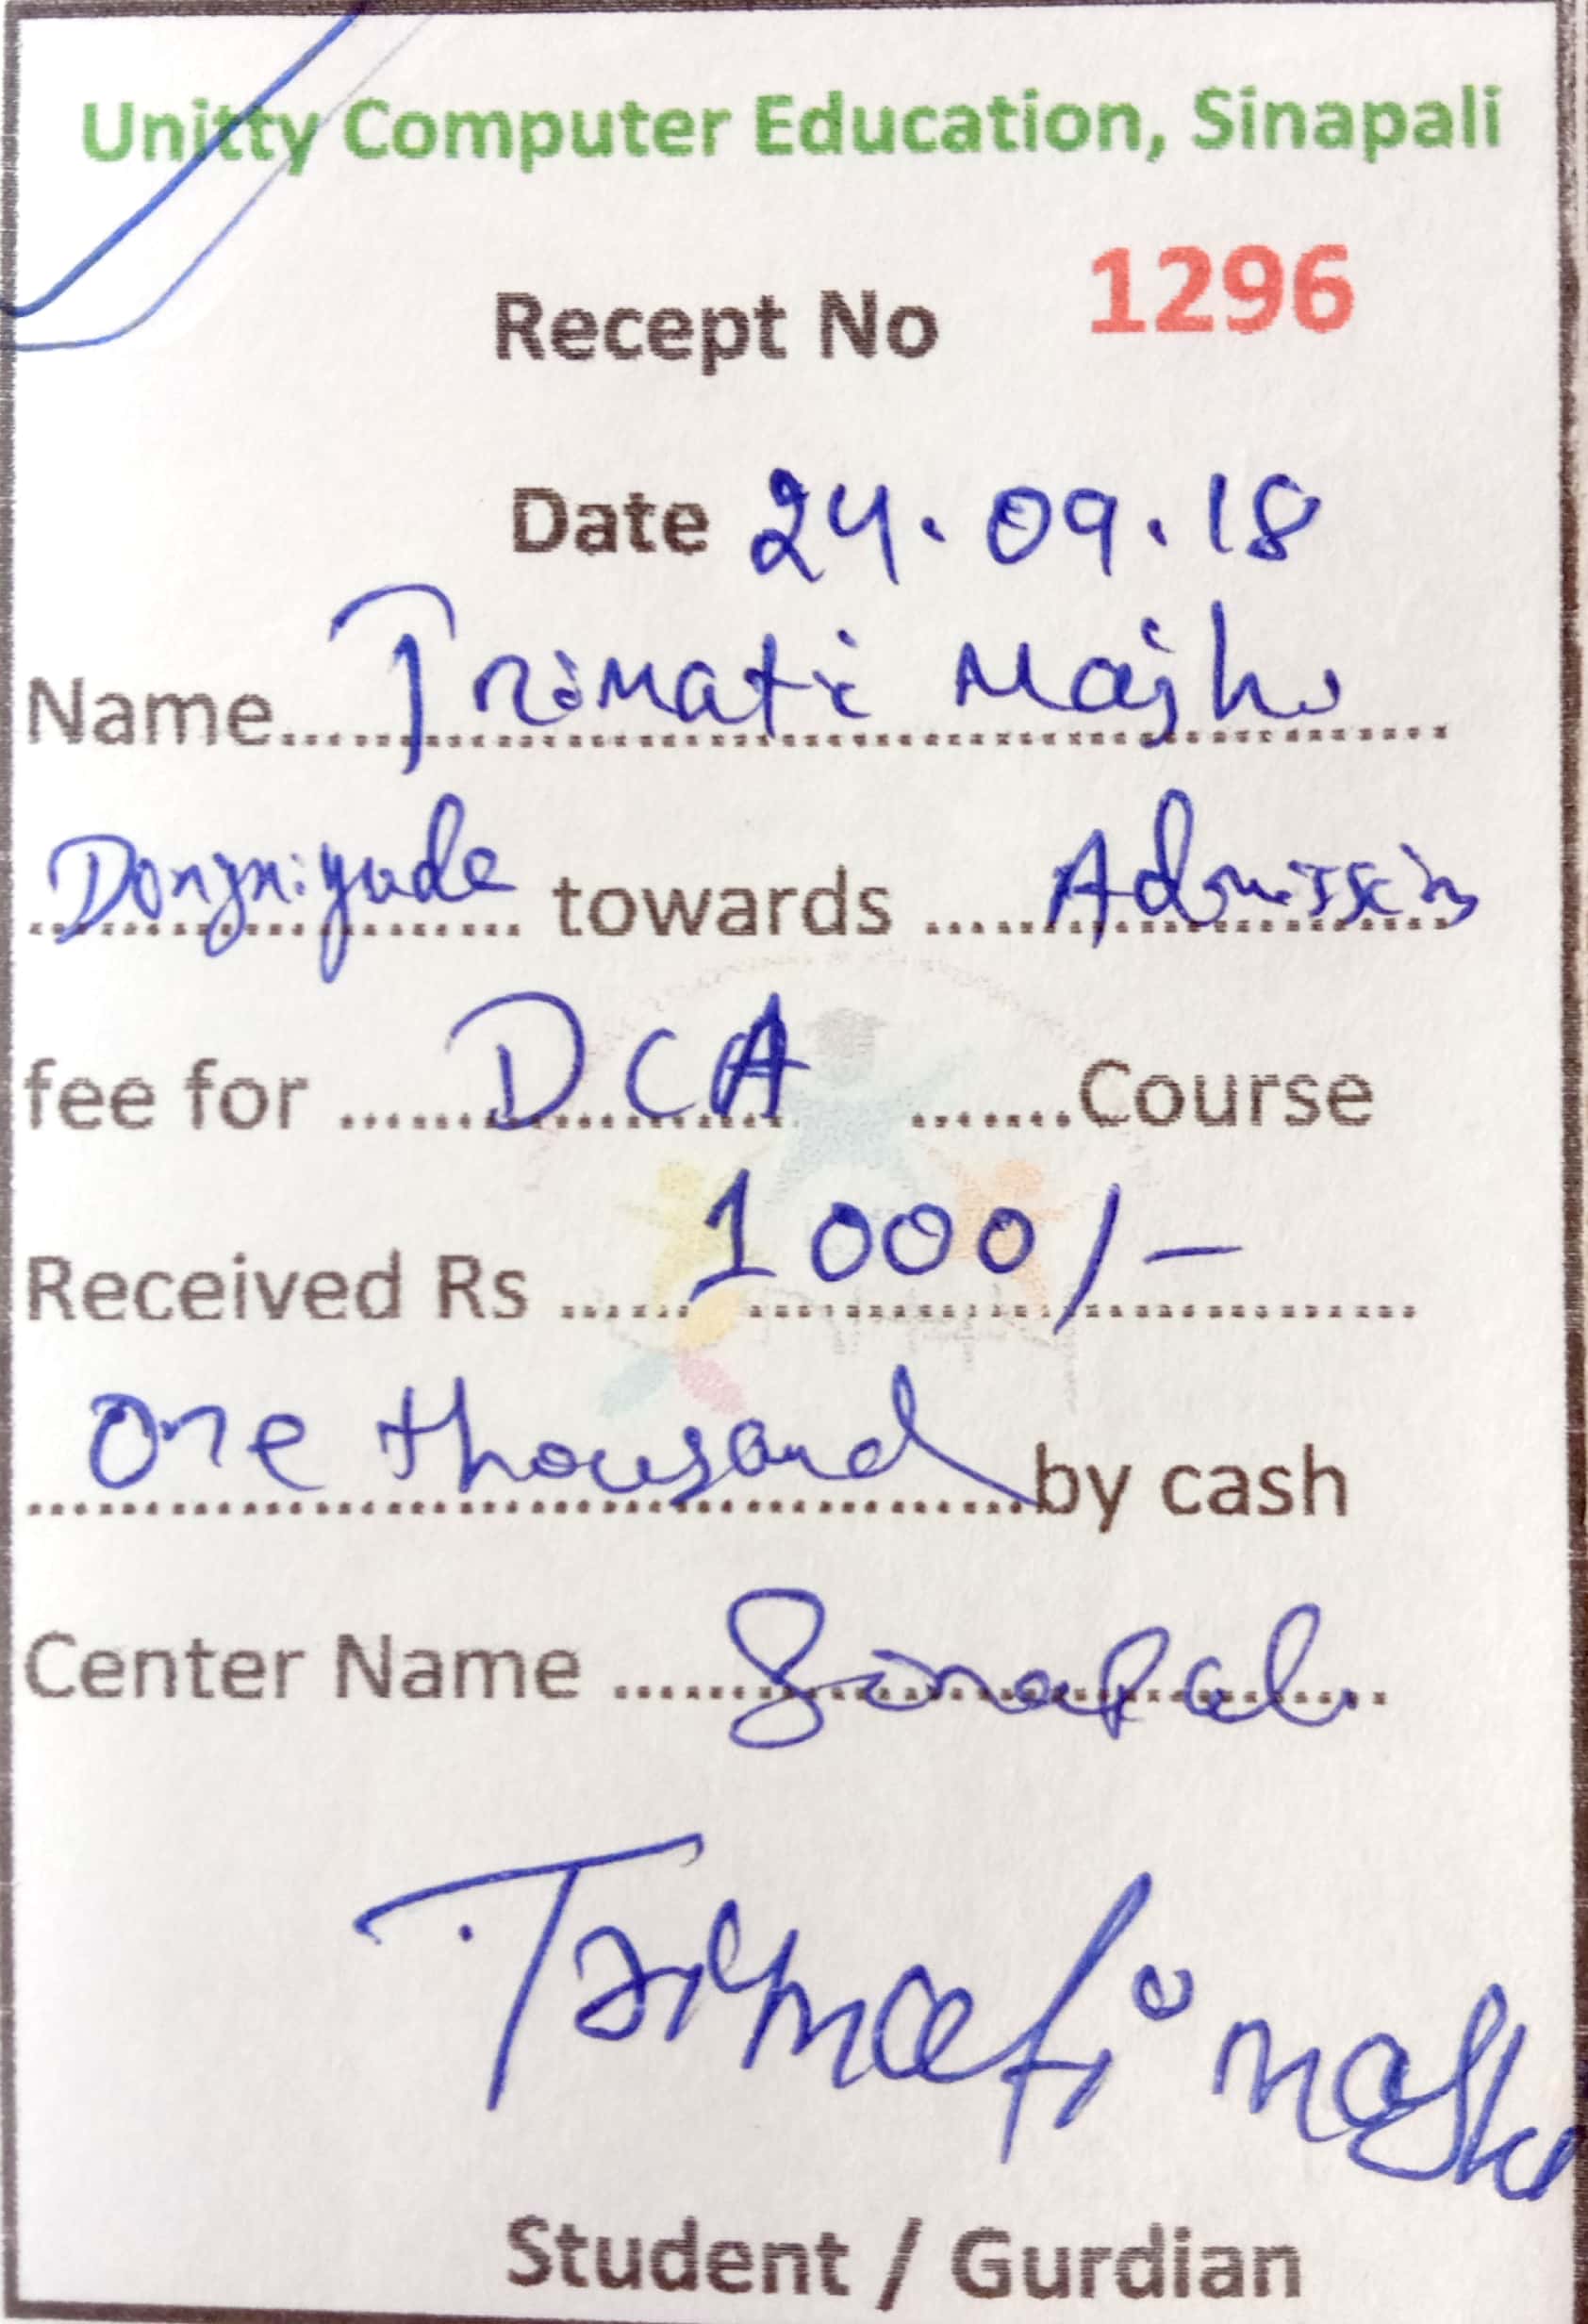 Unitty Computer Education, Sinapali
Recept No 1296
Date 24.09.18
Name..... Trimati Majhi
..... towards ..... Admission
fee for ..... DCA .......Course
Received Rs ..... 1000/-
One thousand by cash
Center Name ..... Sinapali
Trimati majhi
Student / Gurdian